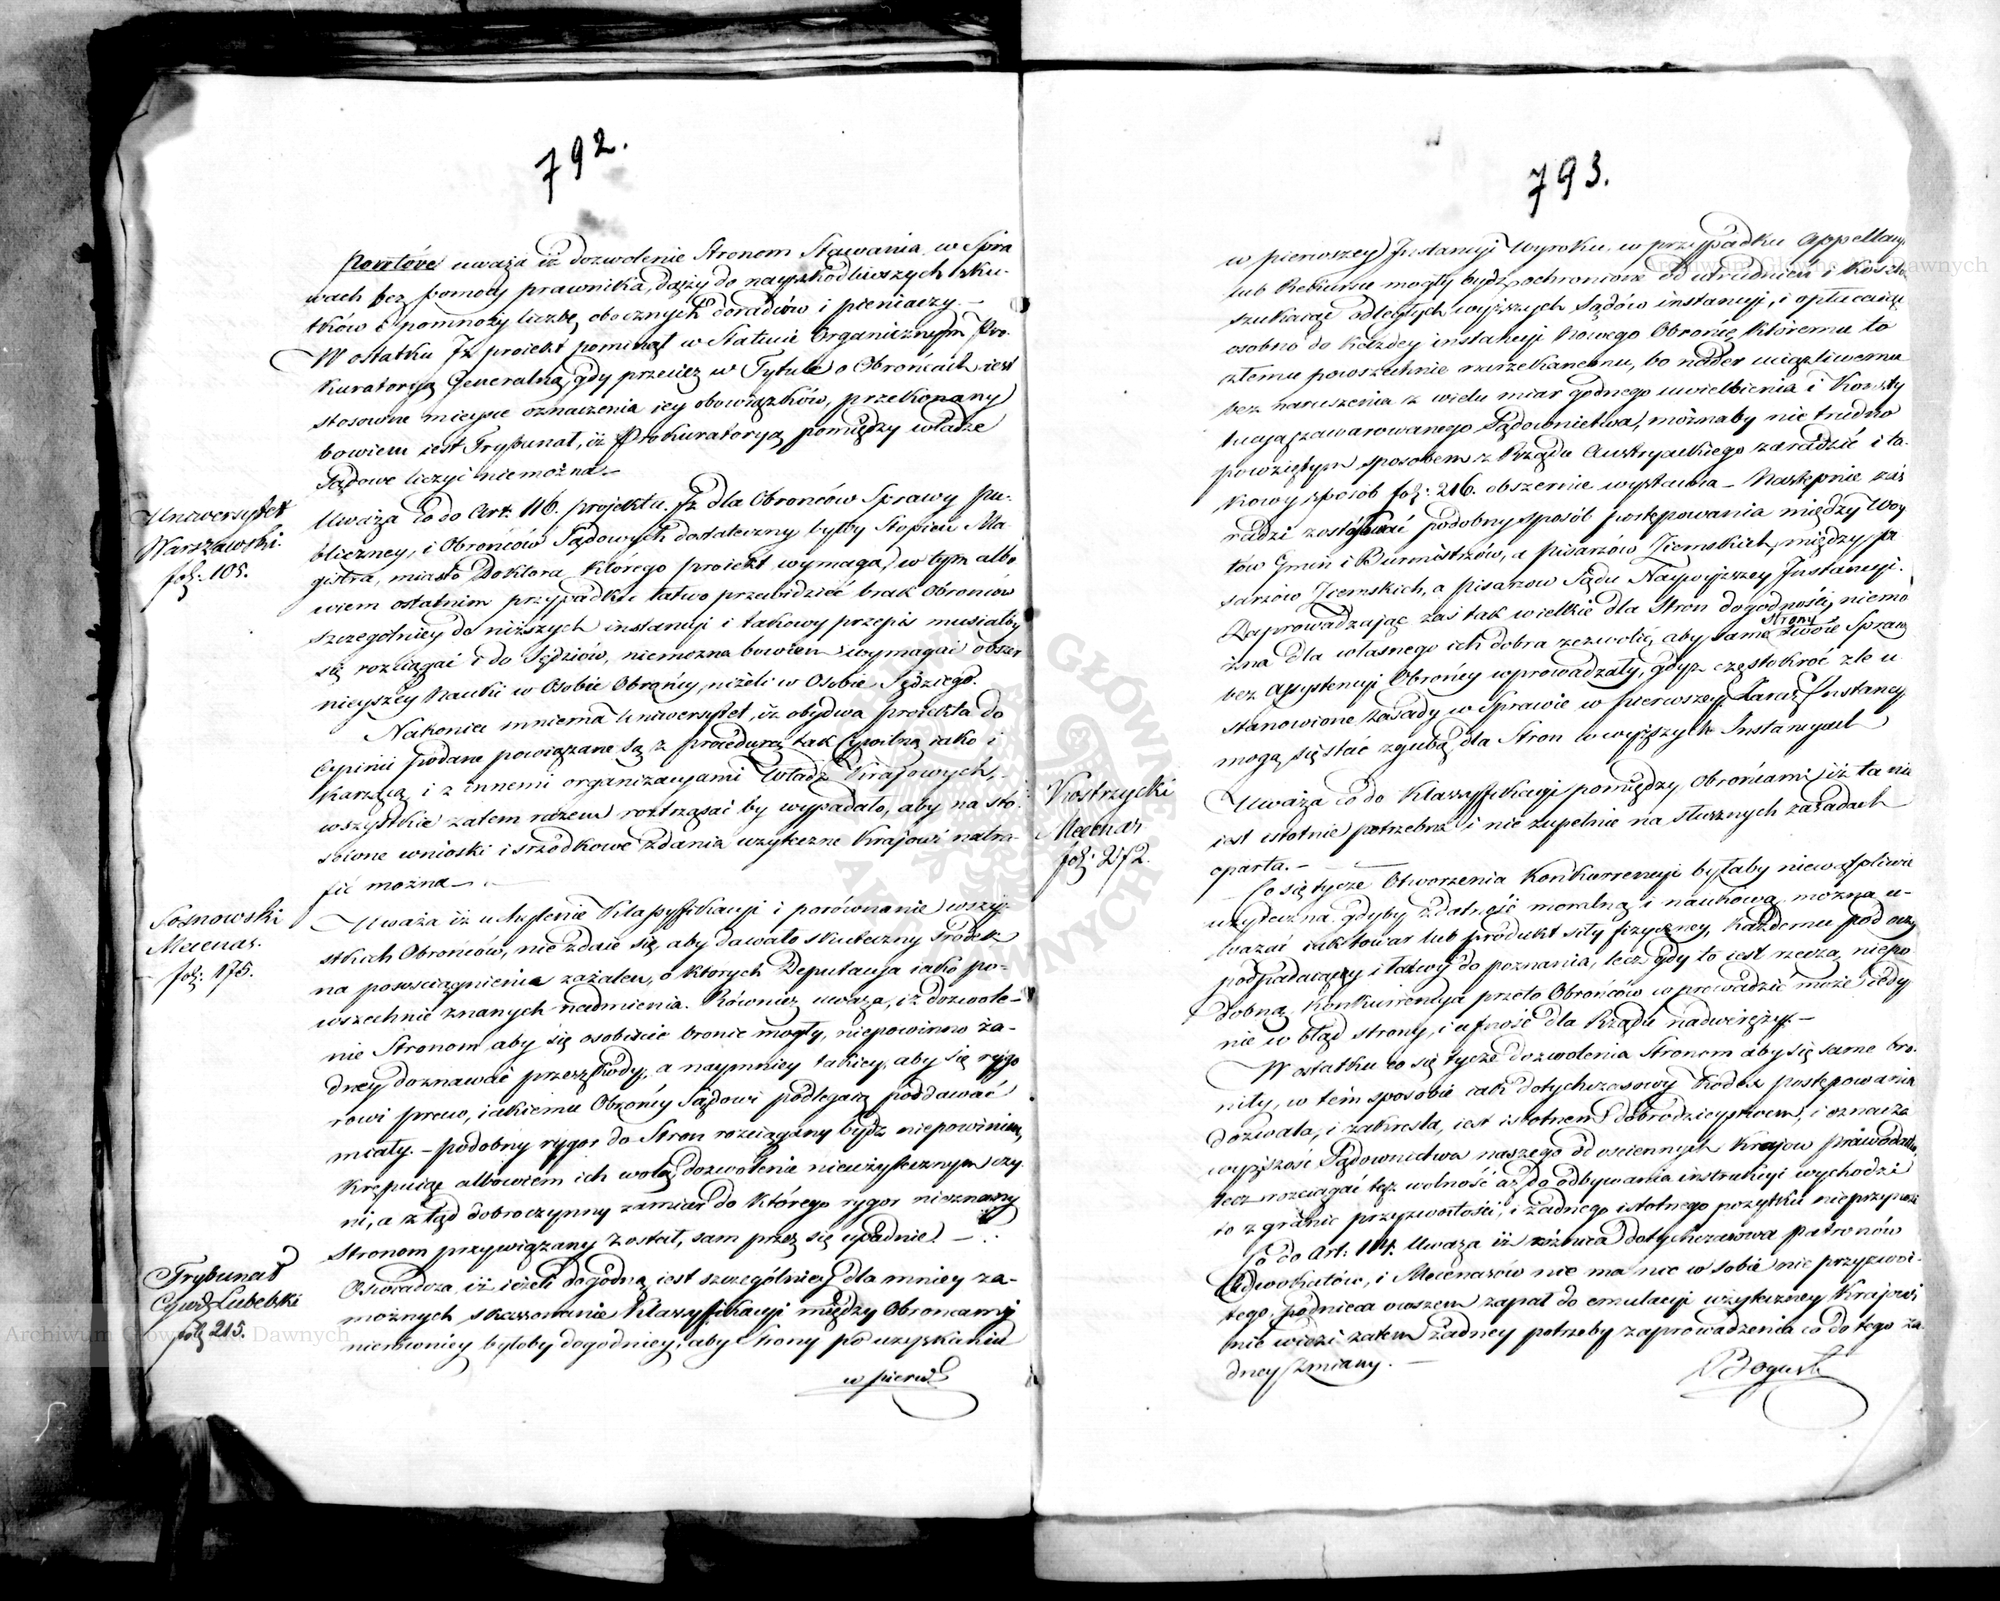 792.
Powtóre uważa iż dozwolenie Stronom Stawania w Spra
wach bez pomocy prawnika, dąży do nayszkodliwszych sku-
tków i pomnoży liczbę obocznych doradców i pieniaczy. —
W ostatku Iż proiekt pominął w Statucie Organicznym Pro-
kuratoryą Generalną, gdy przecież w Tytule o Obrońcach iest
stosowne mieysce oznaczenia iey obowiązków, przekonany
bowiem iest Trybunał, iż Prokuratoryą pomiędzy władze
Sądowe liczyć niemożna. —
Uniwersytet
Warszawski.
fol: 105.
Uważa co do Art: 116. projektu. Iż dla Obrońców Sprawy pu-
bliczney, i Obrońców Sądowych dostateczny byłby Stopień Ma-
gistra, miasto Doktora, którego proiekt wymaga, w tym albo
wiem ostatnim przypadku łatwo przewidzieć brak Obrońców
szczególniey do niższych instancyi i takowy przepis musiałby
się rozciągać i do Sędziów, niemożna bowiem wymagać obszer
nieyszey Nauki w Osobie Obrońcy, niżeli w Osobie Sędziego.
Nakoniec mniema Uniwersytet, iż obydwa proiekta do
Opinii podane powiązane są z procedurą tak Cywilną iako i
Karzącą i z innemi organizacyami Władz Kraiowych,
wszystkie zatem razem roztrząsać by wypadało, aby na sto-
sowne wnioski i srzodkowe zdania użyteczne Kraiowi natra-
fić można. —
Sosnowski
Mecenas.
fol: 175.
Uważa iż uchylenie Klassyfikacyi i porównanie wszy-
stkich Obrońców, nie zdaie się, aby dawało skuteczny środek
na pościągnienie zażaleń, o których Deputacya iako po-
wszechnie znanych nadmienia. Również uważa, iż dozwole-
nie Stronom aby się osobiście bronić mogły, niepowinno ża-
dney doznawać przeszkody, a naymniey takiey, aby się rygo
rowi praw, iakiemu Obrońcy Sądowi podlegaią poddawać
miały. — podobny rygor do Stron rozciągany bydź niepowinien,
Krępuiąc albowiem ich wolą, dozwolenie nieużytecznym czy
ni, a ztąd dobroczynny zamiar do którego rygor nieznany
Stronom przywiązany został, sam przez się upadnie. —
Trybunał
Cywil: Lubelski
fol: 215.
Oświadcza, iż ieżeli dogodną iest szczególniey dla mniey za-
możnych skassowanie Klassyfikacyi między Obrońcami
niemniey byłoby dogodniey, aby Strony po uzyskaniu
w pierws
793.
w pierwszey Instancyi Wyroku, w przypadku Appellacyi
lub Rekursu mogły bydź ochronione od utrudnień i kosztów
szukaiąc odległych wyższych Sądów instancyi, i opłacaiąc
osobno do każdey instancyi Nowego Obrońcę, któremu to
złemu powszechnie narzekanemu, bo nader uciążliwemu
bez naruszenia z wielu miar godnego uwielbienia i Konsty
tucyą zawarowanego Sądownictwa, możnaby nie trudno
powziętym sposobem z Rządu Austryackiego zaradzić i ta-
kowy sposób fol: 216. obszernie wystawia — Następnie zaś
radzi zastósować podobny sposób postępowania między Woy
tów Gmin i Burmistrzów, a pisarzów Ziemskich, między pi
sarzów Ziemskich, a pisarzow Sądu Naywyższey Instancyi.
Zaprowadzaiąc zaś tak wielkie dla Stron dogodności, niemo
żna dla własnego ich dobra zezwolić, aby same Strony swoie Spraw
bez assystencyi Obrońcy wprowadzały, gdyż częstokroć źle u
stanowione zasady w Sprawie w pierwszey zaraz Instancyi
mogą się stać zgubą dla Stron w wyższych Instancyach
Kostrzycki
Mecenas
fol: 272.
Uważa co do Klassyfikacyi pomiędzy Obrońcami, iż ta nie
iest istotnie potrzebna i nie zupełnie na słusznych zasadach
oparta. —
Co się tycze Otworzenia Konkurrencyi byłaby niewątpliwie
użyteczna, gdyby zdatność moralną i naukową można u-
ważać iak towar lub produkt siły fizyczney, każdemu pod oczy
podpadaiący i łatwy do poznania, lecz gdy to iest rzeczą niepo
dobną, Konkurrencya przeto Obrońców wprowadzić może iedy
nie w błąd strony, i ufność dla Rządu nadwerężyć. —
W ostatku co się tycze dozwolenia Stronom aby się same bro-
niły, w tém sposobie iak dotychczasowy Kodex postępowania
dozwala, i zakresla, iest istotnem dobrodzieystwem, i oznacza
wyższość Sądownictwa naszego od ościennych Kraiow prawodaw
lecz rozciągać tęż wolność aż do odbywania instrukcyi wychodzi
to z granic przyzwoitości, i żadnego istotnego pożytku nie przynosi
Co do Art: 114. Uważa iż różnica dotychczasowa patronów
Adwokatów, i Mecenasów nie ma nic w sobie nie przyzwoi-
tego, podnieca owszem zapał do emulacyi użyteczney Kraiowi
nie widzi zatem żadney potrzeby zaprowadzenia co do tego ża-
dney zmiany. —
Archiwum Główne Akt Dawnych
Archiwum Główne Akt Dawnych